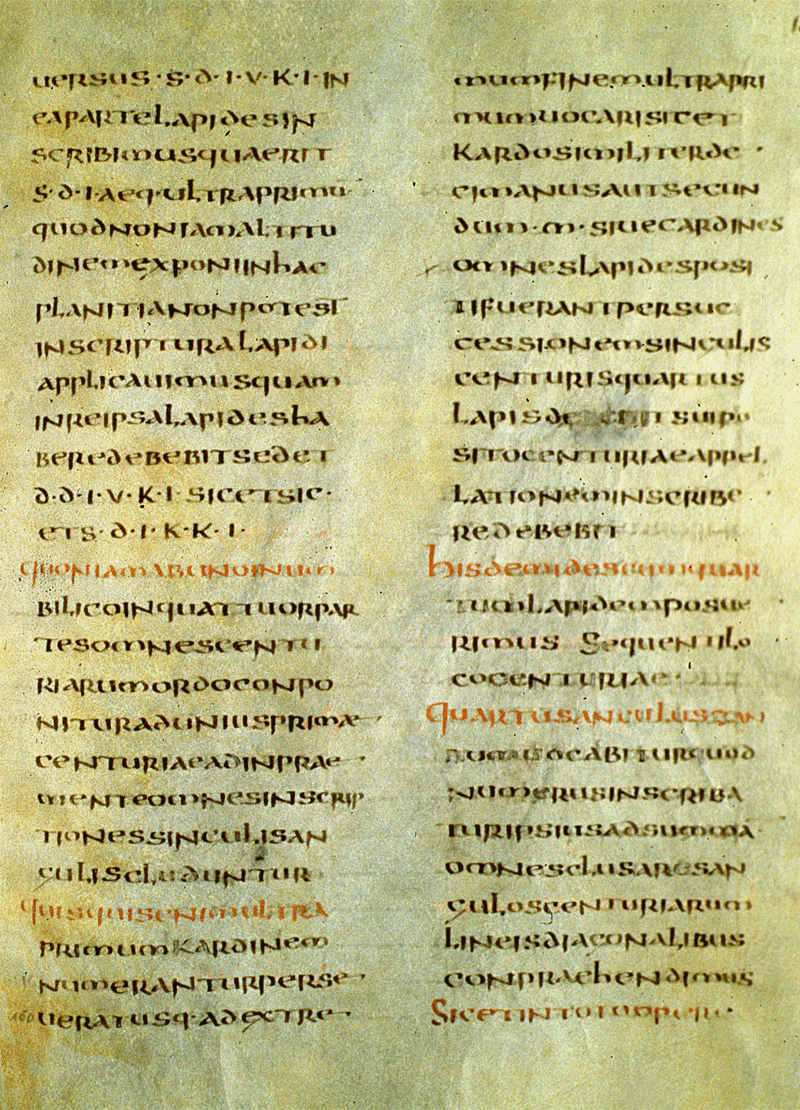 uersus·s·d·i·v·k·i·in
eaparte lapides in
scribimus quaerit
s·d·i·aeq·ultra primu
quod noniam altitu
dinem exponi in hac
planitia non potest
inscriptura lapidi
applicauimus quam
in re ipsa lapides ha
bere debebit sed et
d·d·i·v·k·i sicet sic·
et s·d·i·k·k·i·
quoniam
bilico in quattuor par
tes omnes centu
riarum ordo conpo
nitur ad unius primae
centuriae adinprae
mente omnes inscrip
tiones singulis an
gulis cluduntur
quisquis enim ultra
primum kardinem
numerantur perse
ueratusq·ad extre
mum finem ultra pri
mum uocari sicet
kardo similiter de
cimanus aut secun
dum·m·siue cardines
omnes lapides posi
ti fuerant per suc
cessionem singulis
centuris quartus
lapis suipo
sito centuriae appel
lationem inscribe
re debebit
hisdem quar
tum lapidem posue
rimus sequenti lo
co centuriae
quartus angulus
uocabitur quod
numerus inscriba
tur ipsius ad summa
omnes clusares an
gulos centuriarum
lineis diaconalibus
conpraehendimus
Sicet in toto